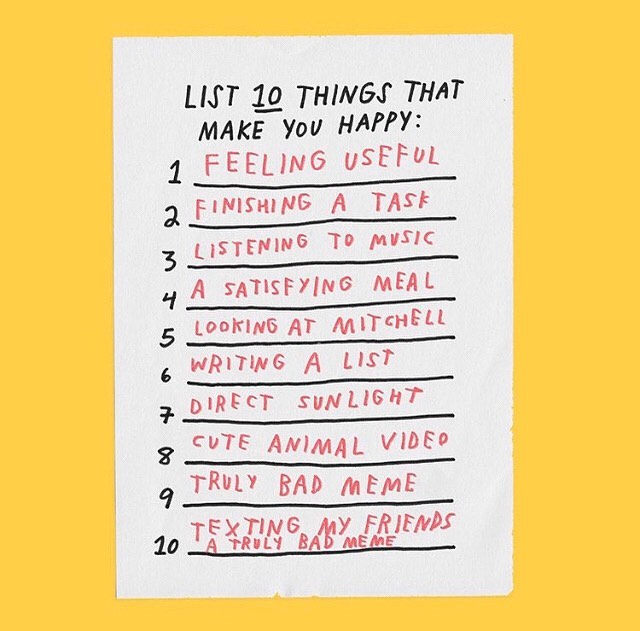 LIST 10 THINGS THAT
MAKE YOU HAPPY:
1 FEELING USEFUL
2 FINISHING A TASK
3 LISTENING TO MUSIC
4 A SATISFYING MEAL
5 LOOKING AT MITCHELL
6 WRITING A LIST
7 DIRECT SUNLIGHT
8 CUTE ANIMAL VIDEO
9 TRULY BAD MEME
10 TEXTING MY FRIENDS
A TRULY BAD MEME